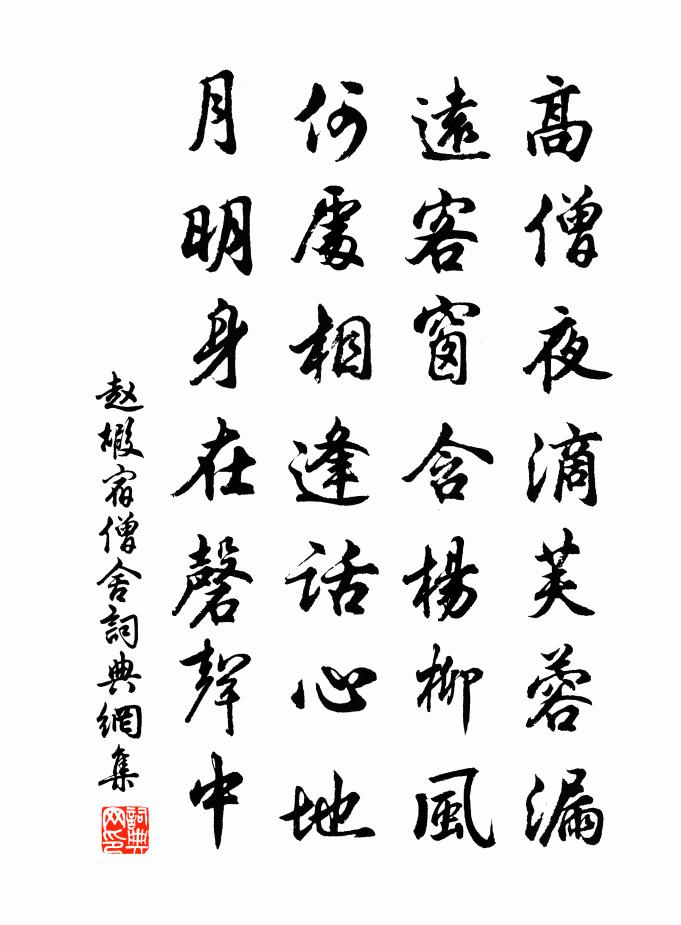 高僧夜滴芙蓉漏
遠客窗含楊柳風
何處相逢話心地
月明身在磬聲中
赵嘏宿僧舍詞典網集
詞典
网印